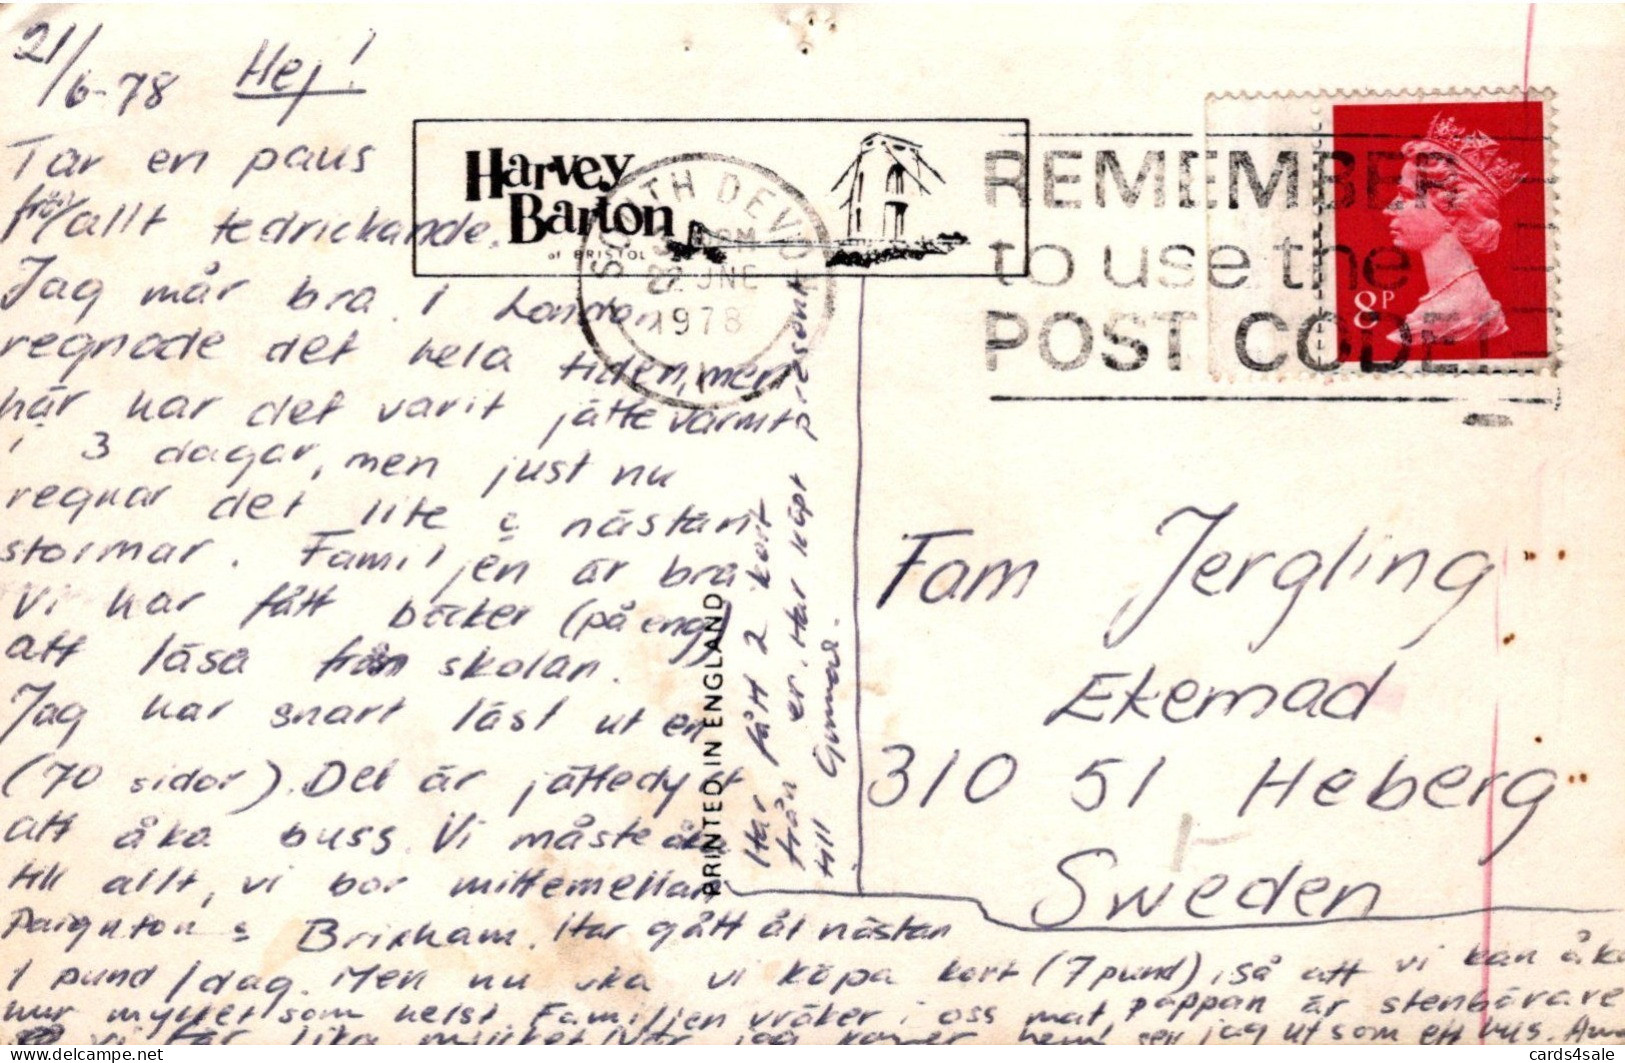 21/6-78 Hej!
Tar en paus
från allt tedrickande.
Jag mår bra. I London
regnade det hela tiden, men
här har det varit jättevarmt
i 3 dagar, men just nu
regnar det lite & nästan
stormar. Familjen är bra
Vi har fått böcker (på eng)
att läsa från skolan.
Jag har snart läst ut en
(70 sidor). Det är jättedyrt
att åka buss. Vi måste åka
till allt, vi bor mittemellan
Paignton & Brixham. Har gått åt nästan
1 pund/dag. Men nu ska vi köpa kort (7 pund), så att vi kan åka
hur mycket som helst. Familjen vräker i oss mat, pappan är stenbärare
vi får lika mycket. När jag kommer hem ser jag ut som ett hus.
Har fått 2 kort
från er. Har köpt present
till Gunnar.
Harvey
Barton
of BRISTOL
SOUTH DEVON
PM
22 JNE
1978
REMEMBER
to use the
POST CODE!
8P
PRINTED IN ENGLAND
Fam Jergling
Ekemad
310 51 Heberg
Sweden
cards4sale